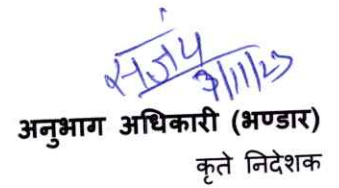 संजय
3/11/23
अनुभाग अधिकारी (भण्डार)
कृते निदेशक